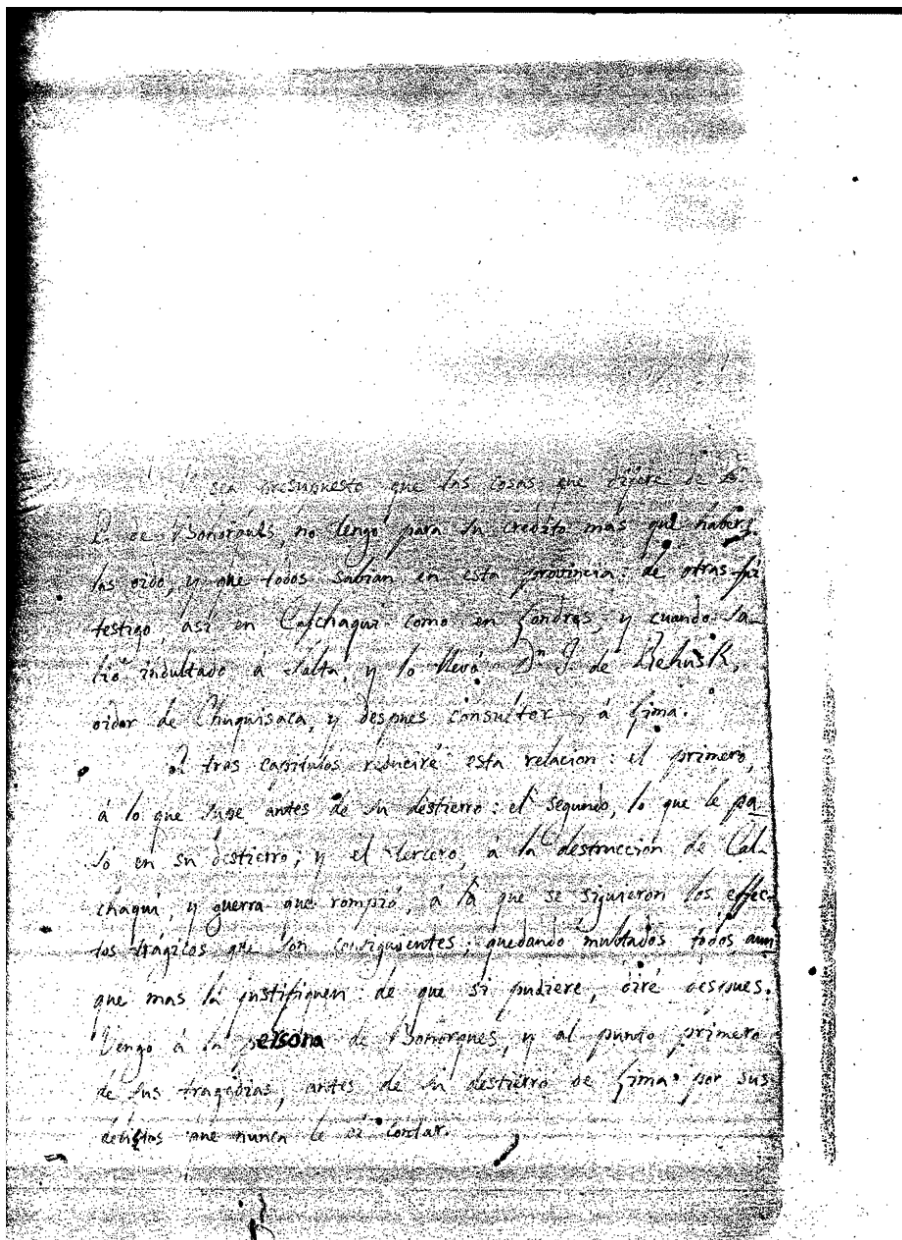 sea presupuesto que las cosas que dijere de D.
P. de Bohorques, no tengo para su credito mas que haber
las oido, y que todos sabian en esta provincia: de otras fui
testigo, asi en Calchaqui como en Londres, y cuando sa-
lió indultado á Salta, y lo llevó Dn J. de
oidor de Chuquisaca, y despues consultor, á Lima.
A tres capitulos reduciré esta relacion: el primero,
á lo que supe antes de su destierro: el segundo, lo que le pa-
só en su destierro; y el tercero, á la destruccion de Cal-
chaqui, y guerra que rompió, á la que se siguieron los effec-
tos trágicos que son consiguientes; quedando multados todos aun
que mas la justifiquen: de que si pudiere, diré despues.
Vengo á la persona de Bohorques, y al punto primero
de sus tragedias, antes de su destierro de Lima por sus
delitos que nunca le oí contar.